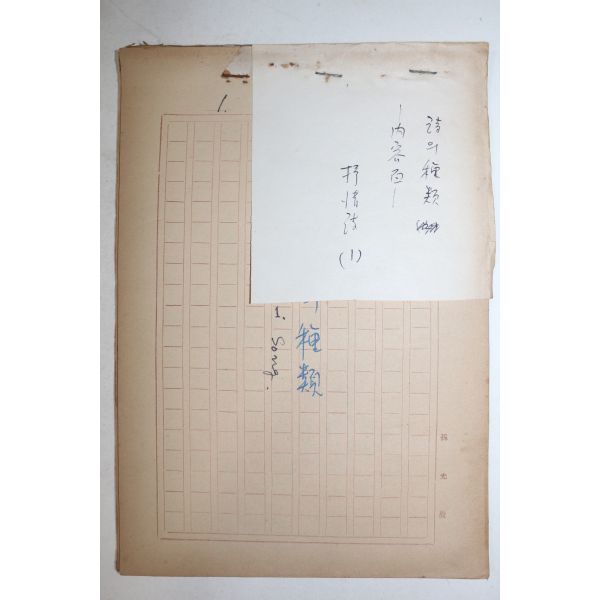 詩의 種類
—內容面—
抒情詩
(1)
1.
의 種類
Song.